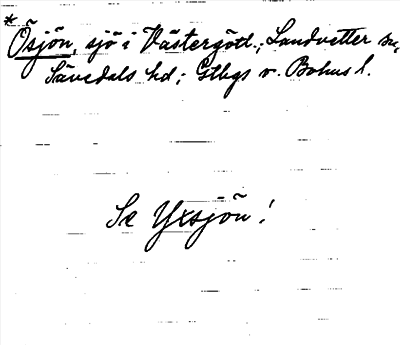 * Ösjön, sjö i Västergötl.; Landvetter sn,
Sävedals hd; Gtbgs o. Bohus l.
Se Yxsjön!